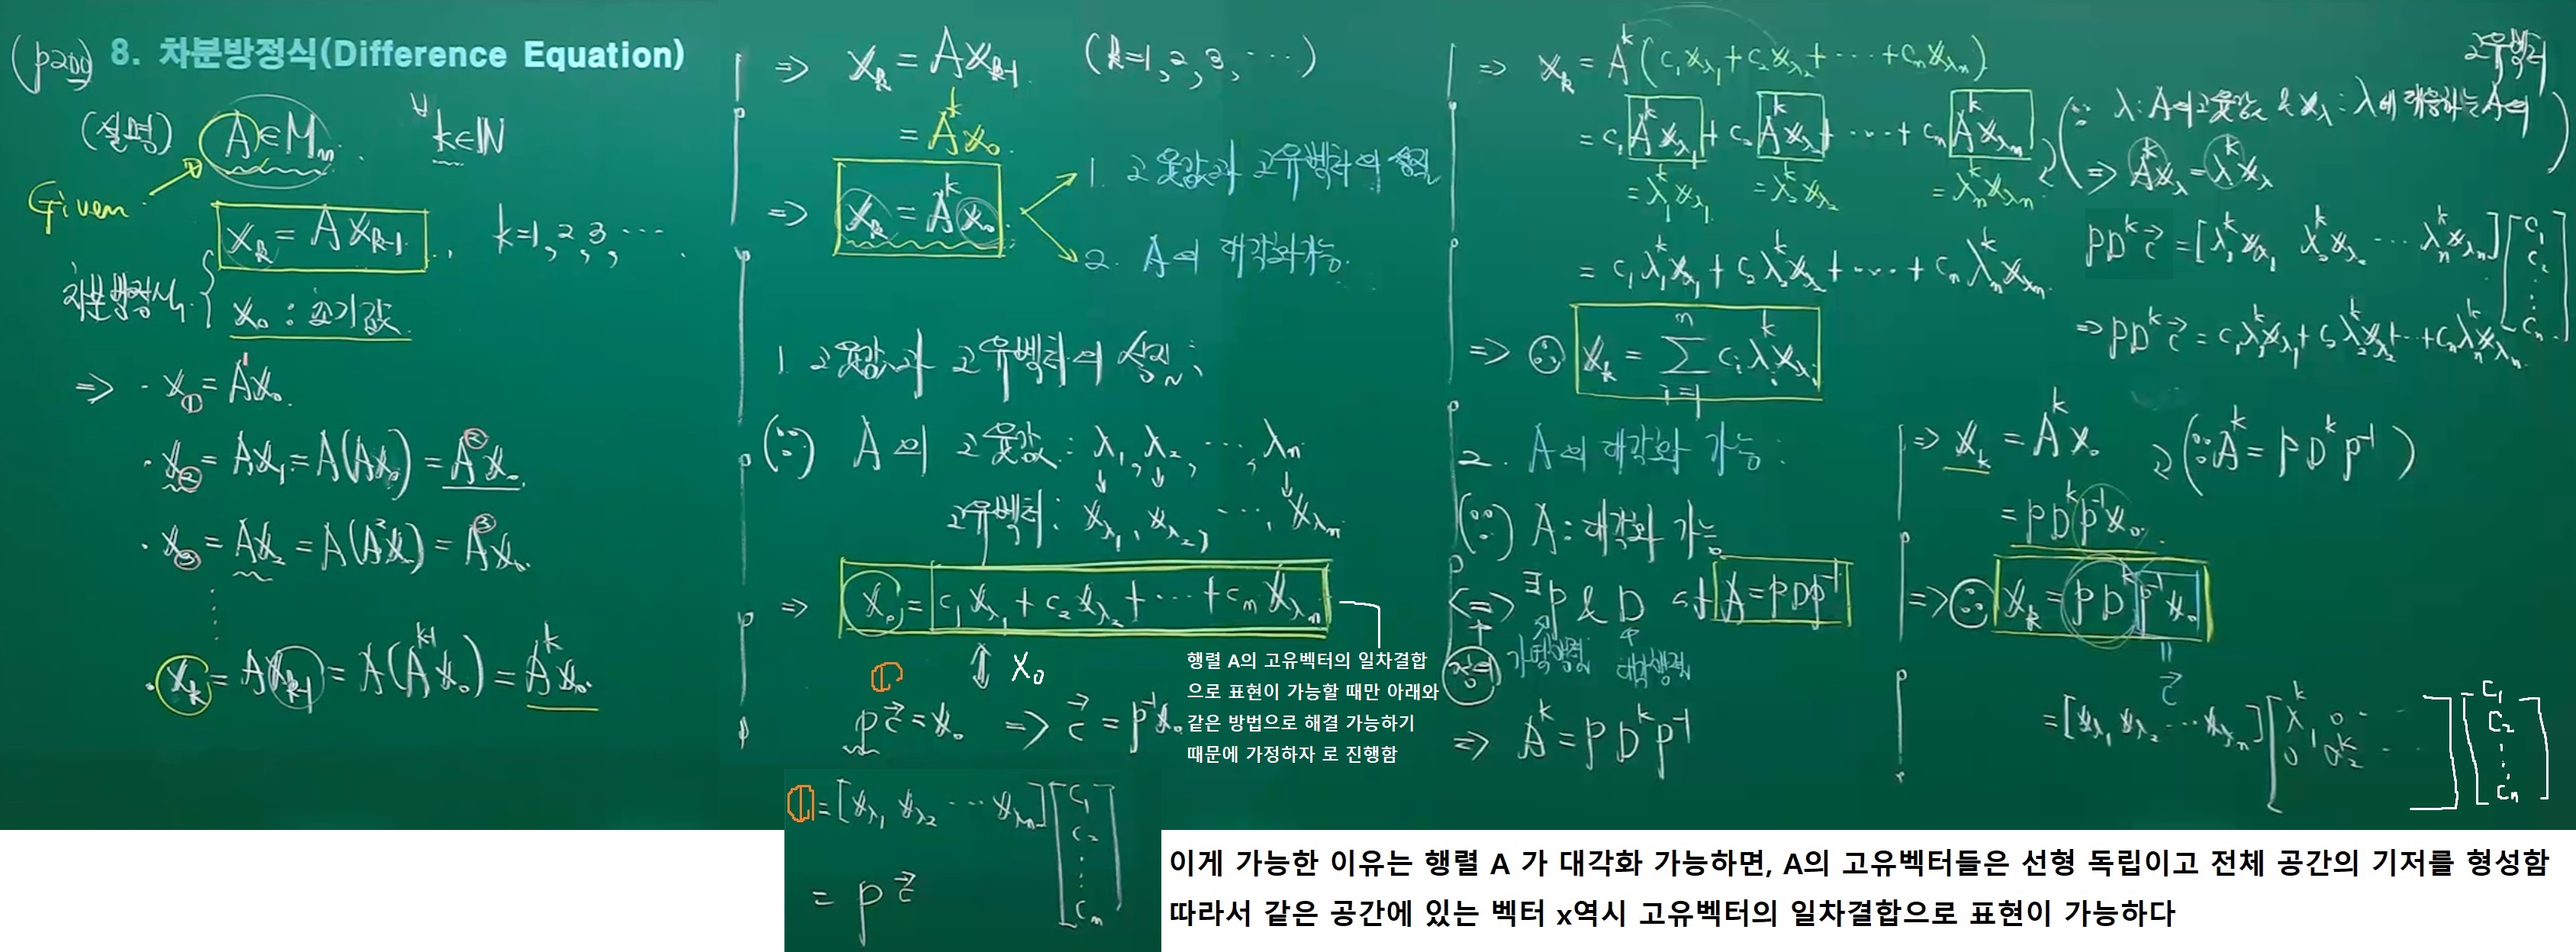 (p200) 8. 차분방정식(Difference Equation)
(설명) A∈Mₙ. ∀k∈ℕ
Given
x_k = A x_{k-1}, k=1, 2, 3, ⋯
차분방정식
x₀ : 초기값
⇒ · x₁ = A¹x₀.
· x₂ = Ax₁ = A(Ax₀) = A²x₀.
· x₃ = Ax₂ = A(A²x₀) = A³x₀.
⋮
· x_k = Ax_{k-1} = A(A^{k-1}x₀) = A^k x₀.
⇒ x_k = Ax_{k-1} (k=1, 2, 3, ⋯)
= A^k x₀.
⇒ x_k = A^k x₀
1. 고윳값과 고유벡터의 성질
2. A의 대각화가능.
1. 고윳값과 고유벡터의 성질 ;
(∵) A의 고윳값 : λ₁, λ₂, ⋯, λₙ
↓ ↓ ↓
고유벡터 : x_{λ₁}, x_{λ₂}, ⋯, x_{λₙ}
⇒ x₀ = c₁x_{λ₁} + c₂x_{λ₂} + ⋯ + cₙx_{λₙ}
⇕ x₀
①
Pc⃗ = x₀ ⇒ c⃗ = P⁻¹x₀
행렬 A의 고유벡터의 일차결합
으로 표현이 가능할 때만 아래와
같은 방법으로 해결 가능하기
때문에 가정하자 로 진행함
① = [x_{λ₁} x_{λ₂} ⋯ x_{λₙ}] [c₁ c₂ ⋮ cₙ]
= Pc⃗
⇒ x_k = A^k(c₁x_{λ₁} + c₂x_{λ₂} + ⋯ + cₙx_{λₙ})
= c₁A^k x_{λ₁} + c₂A^k x_{λ₂} + ⋯ + cₙA^k x_{λₙ}
= λ₁^k x_{λ₁} = λ₂^k x_{λ₂} = λₙ^k x_{λₙ}
= c₁λ₁^k x_{λ₁} + c₂λ₂^k x_{λ₂} + ⋯ + cₙλₙ^k x_{λₙ}
⇒ x_k = Σ_{i=1}^{n} c_i λ_i^k x_{λ_i}
고유벡터
(∵ λ : A의 고윳값 & x_λ : λ에 대응하는 A의
⇒ A^k x_λ = λ^k x_λ)
PD^k c⃗ = [λ₁^k x_{λ₁} λ₂^k x_{λ₂} ⋯ λₙ^k x_{λₙ}] [c₁ c₂ ⋮ cₙ]
⇒ PD^k c⃗ = c₁λ₁^k x_{λ₁} + c₂λ₂^k x_{λ₂} + ⋯ + cₙλₙ^k x_{λₙ}
2. A의 대각화 가능 :
(∵) A : 대각화 가능
⇔ ∃P & D s.t A = PDP⁻¹
가역행렬 대각행렬
⇒ A^k = PD^kP⁻¹
⇒ x_k = A^k x₀ (∵ A^k = PD^kP⁻¹)
= PD^kP⁻¹x₀.
⇒ x_k = PD^kP⁻¹x₀
= c⃗
= [x_{λ₁} x_{λ₂} ⋯ x_{λₙ}] [λ₁^k 0 ⋯ 0 λ₂^k ⋯] [c₁ c₂ ⋮ cₙ]
이게 가능한 이유는 행렬 A 가 대각화 가능하면, A의 고유벡터들은 선형 독립이고 전체 공간의 기저를 형성함
따라서 같은 공간에 있는 벡터 x역시 고유벡터의 일차결합으로 표현이 가능하다